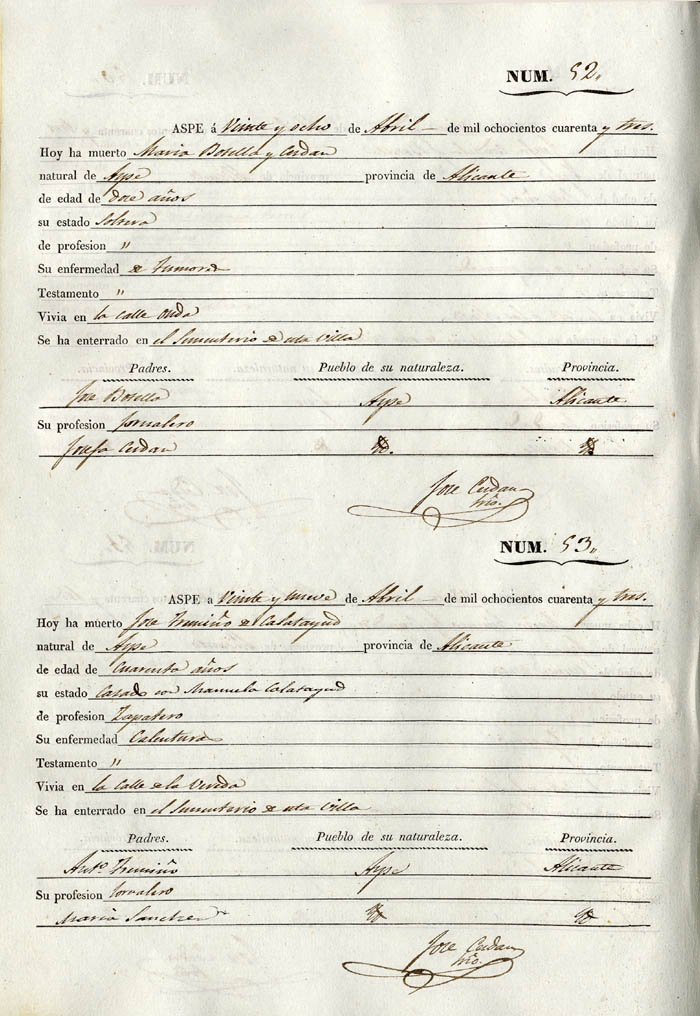 NUM. 52.
ASPE á Veinte y ocho de Abril de mil ochocientos cuarenta y tres.
Hoy ha muerto Maria Botella y Cerdan
natural de Aspe provincia de Alicante
de edad de doce años
su estado Soltera
de profesion "
Su enfermedad de Tumores
Testamento "
Vivia en la Calle Onda
Se ha enterrado en el Sementerio de esta Villa
Padres. Pueblo de su naturaleza. Provincia.
Jose Botella Aspe Alicante
Su profesion Jornalero
Josefa Cerdan Yd. Yd
Jose Cerdan
NUM. 53.
ASPE a Veinte y nueve de Abril de mil ochocientos cuarenta y tres.
Hoy ha muerto Jose Irmiño de Calatayud
natural de Aspe provincia de Alicante
de edad de Cuarenta años
su estado Casado con Manuela Calatayud
de profesion Zapatero
Su enfermedad Calentura
Testamento "
Vivia en la Calle de la Vereda
Se ha enterrado en el Sementerio de esta Villa
Padres. Pueblo de su naturaleza. Provincia.
Anto. Aspe Alicante
Su profesion Jornalero
Maria Sanchez Yd Yd
Jose Cerdan